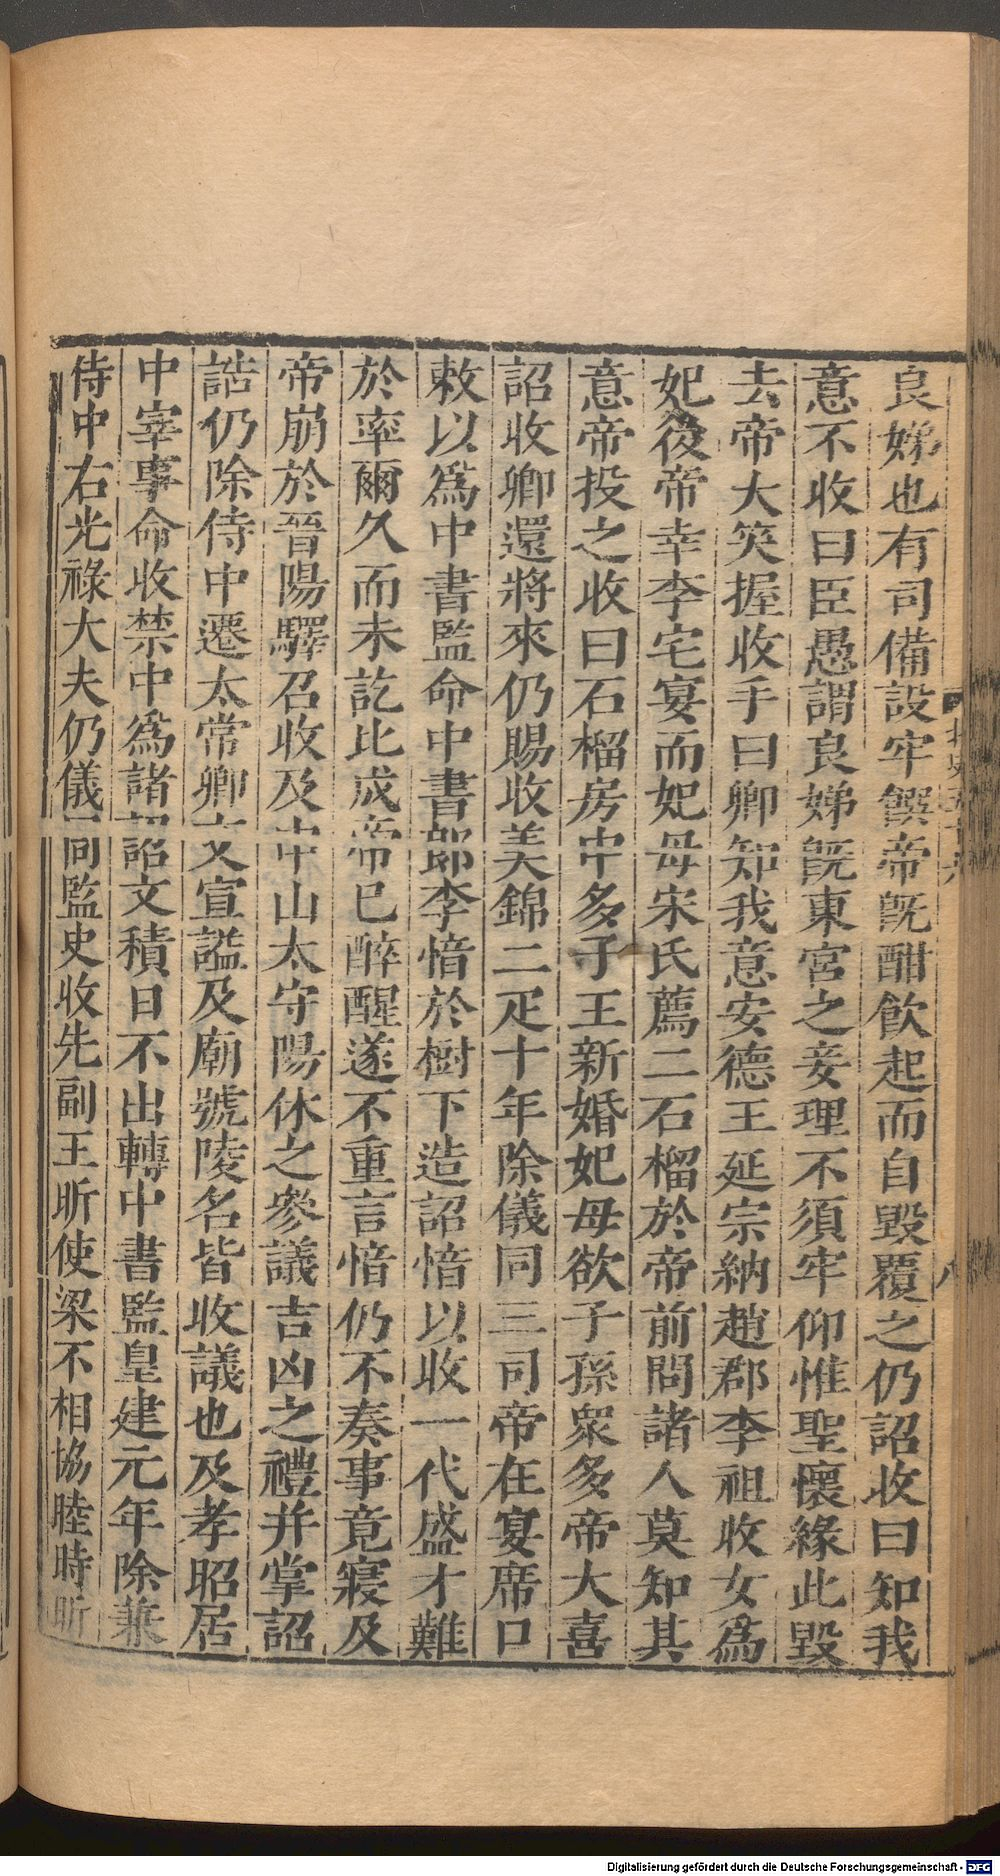 良娣也有司備設牢饌帝既酣飲起而自毀覆之仍詔收曰知我
意不收曰臣愚謂良娣既東宮之妾理不須牢仰惟聖懷緣此毀
去帝大笑握收手曰卿知我意安德王延宗納趙郡李祖收女爲
妃後帝幸李宅宴而妃母宋氏薦二石榴於帝前問諸人莫知其
意帝投之收曰石榴房中多子王新婚妃母欲子孫衆多帝大喜
詔收卿還將來仍賜收美錦二疋十年除儀同三司帝在宴席口
敕以爲中書監命中書郎李愔於樹下造詔愔以收一代盛才難
於率爾久而未訖比成帝已醉醒遂不重言愔仍不奏事竟寢及
帝崩於晉陽驛召收及中山太守陽休之參議吉凶之禮并掌詔
誥仍除侍中遷太常卿文宣謚及廟號陵名皆收議也及孝昭居
中宰事命收禁中爲諸詔文積日不出轉中書監皇建元年除兼
侍中右光祿大夫仍儀同監史收先副王昕使梁不相協睦時昕
八
Digitalisierung gefördert durch die Deutsche Forschungsgemeinschaft - DFG